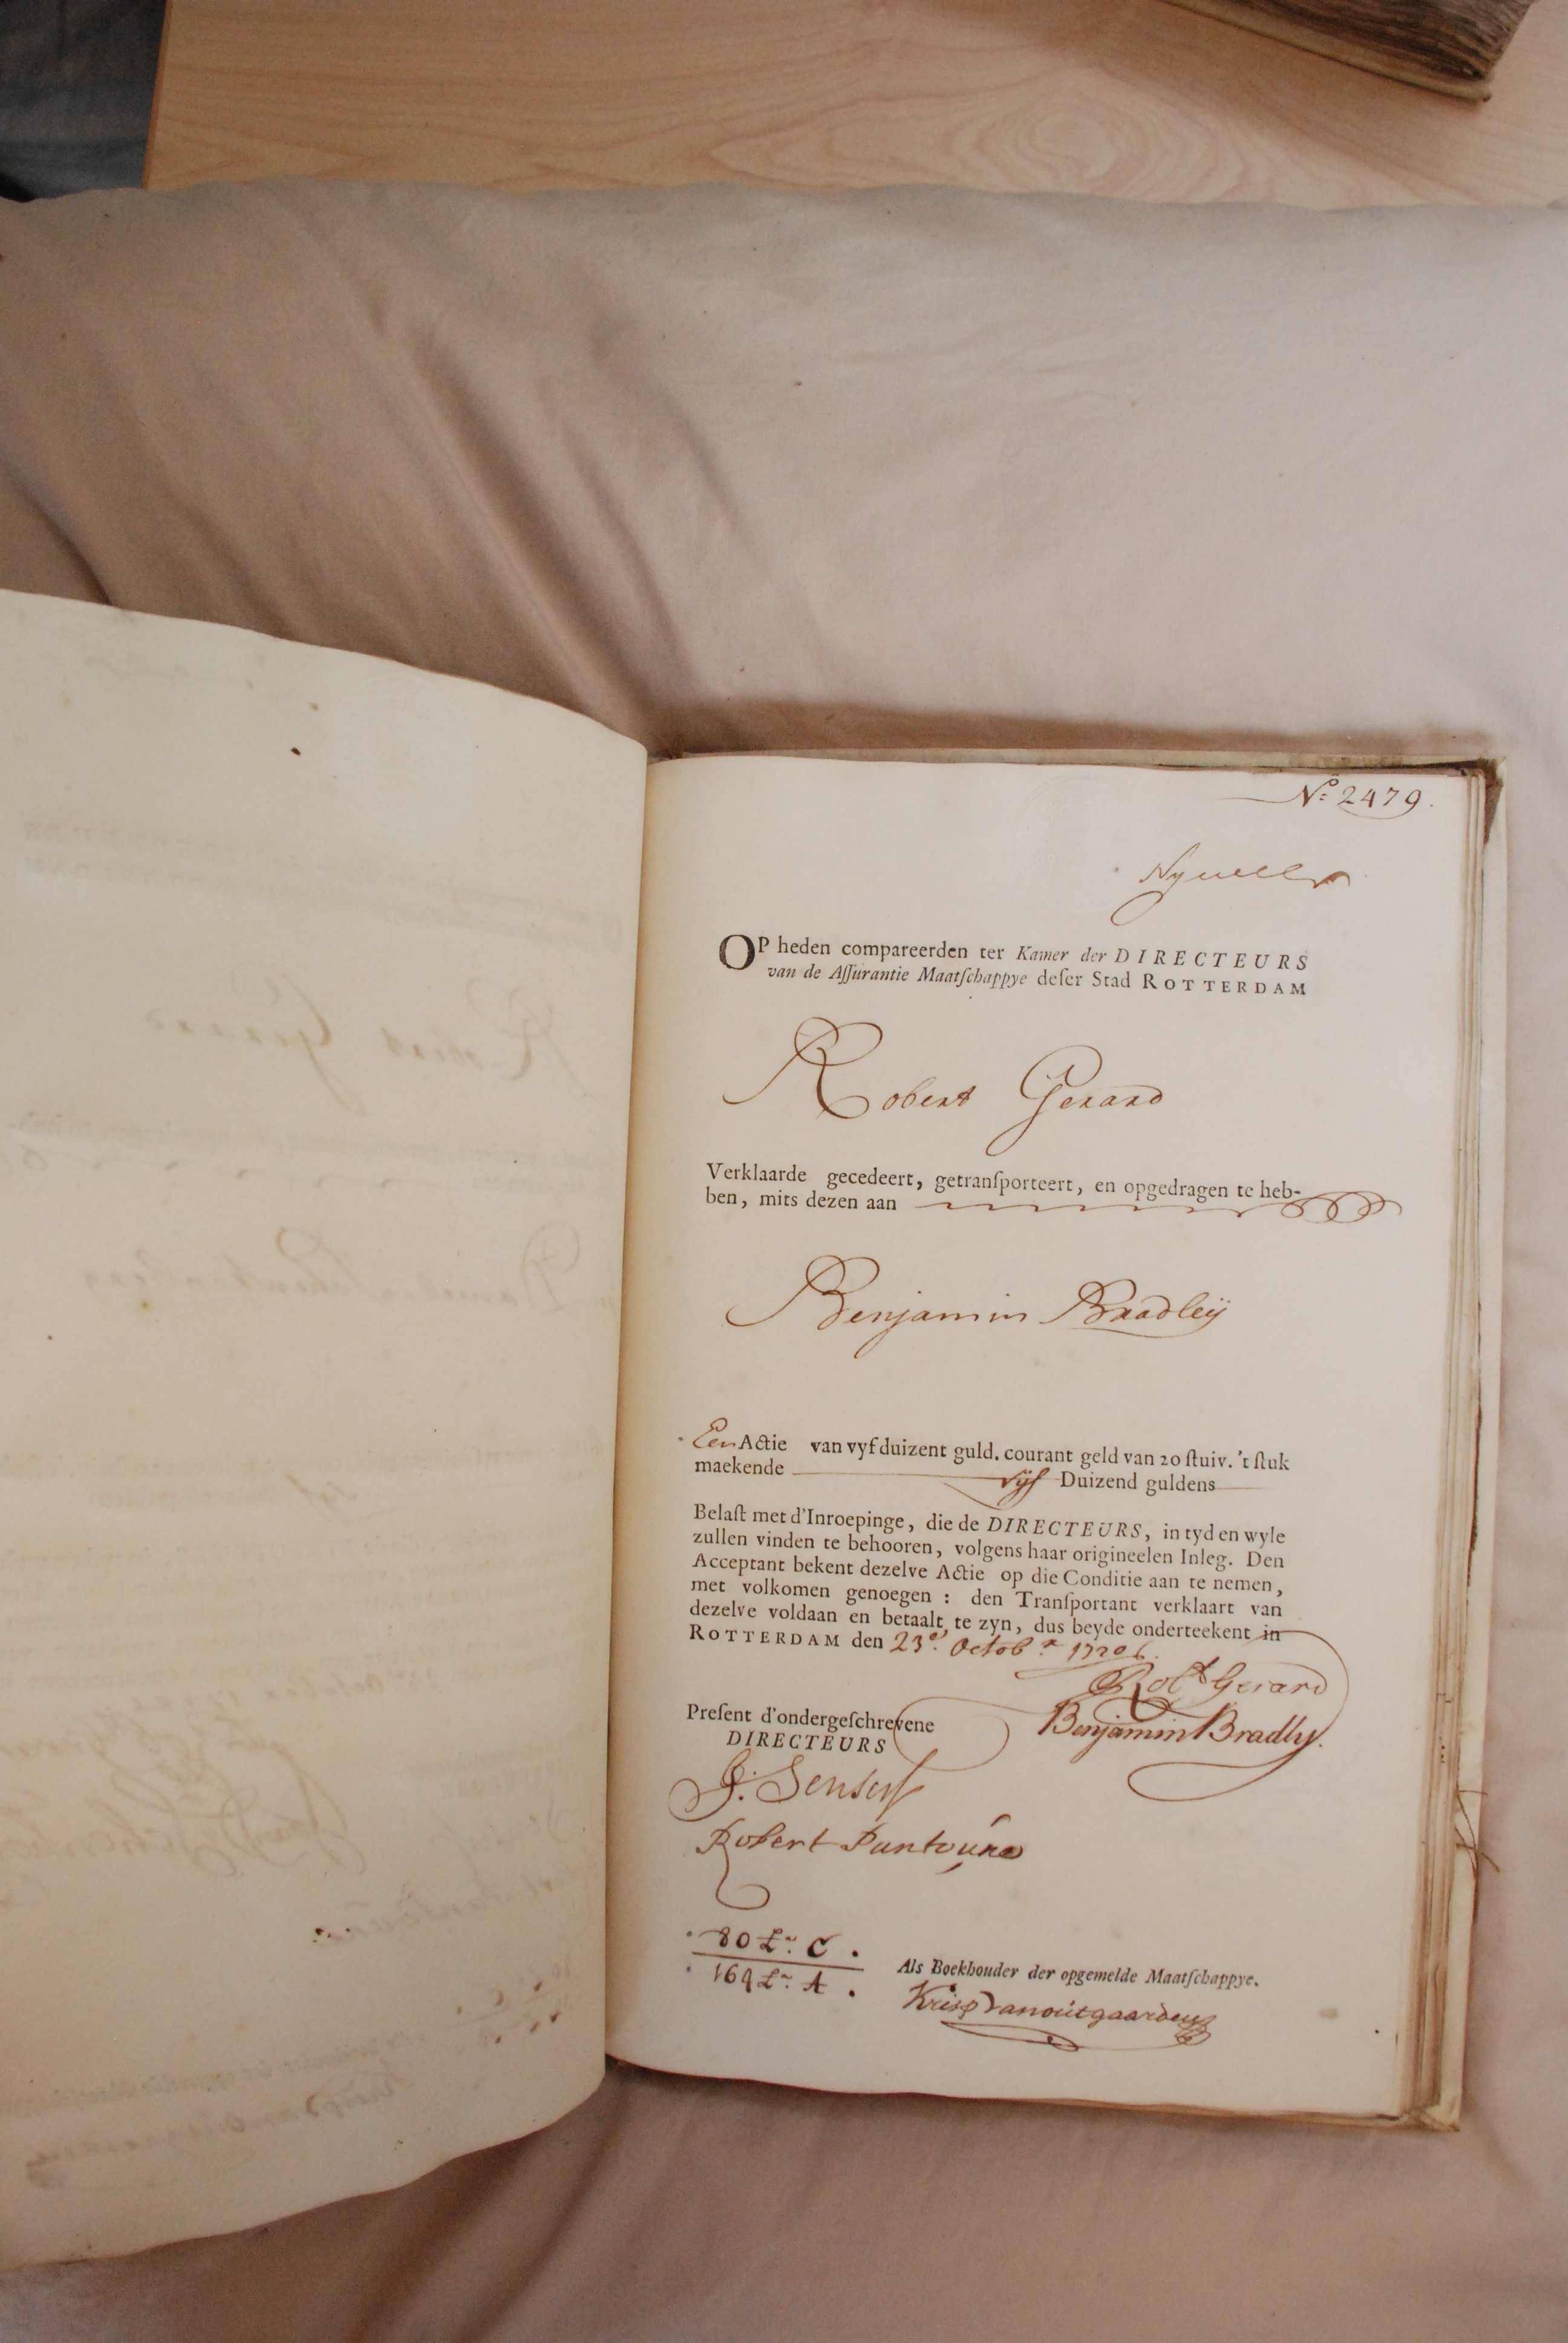 Nº: 2479.
OP heden compareerden ter Kamer der DIRECTEURS
van de Aſſurantie Maatſchappye deſer Stad ROTTERDAM
Robert Gerard
Verklaarde gecedeert, getranſporteert, en opgedragen te heb-
ben, mits dezen aan
Benjamin Bradleÿ
Een Actie van vyf duizent guld. courant geld van 20 ſtuiv. 't ſtuk
maekende Vijf Duizend guldens
Belaſt met d'Inroepinge, die de DIRECTEURS, in tyd en wyle
zullen vinden te behooren, volgens haar origineelen Inleg. Den
Acceptant bekent dezelve Actie op die Conditie aan te nemen,
met volkomen genoegen : den Tranſportant verklaart van
dezelve voldaan en betaalt te zyn, dus beyde onderteekent in
ROTTERDAM den 23e. Octob.r 1720
Robt Gerard
Benjamin Bradly.
Preſent d'ondergeſchrevene
DIRECTEURS
Robert
80 Lr. C.
169 Lr. A.
Als Boekhouder der opgemelde Maatſchappye.
Krisp Vanoutgaarden